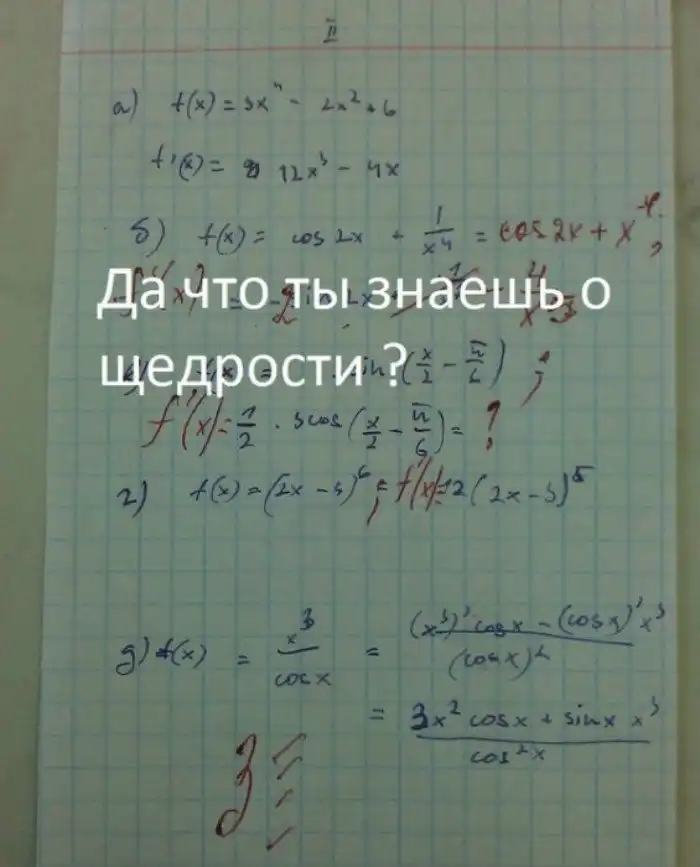 II
а) f(x) = 3x⁴ - 2x² + 6
f'(x) = 12x³ - 4x
б) f(x) = cos 2x + 1/x⁴ = cos 2x + x⁻⁴;
Да что ты знаешь о
щедрости ?
sin (x/2 - π/6) ;
f'(x) = 1/2 · 3cos (x/2 - π/6) = ?
г) f(x) = (2x - 3)⁶ ; = f'(x) = 12 (2x - 3)⁵
д) f(x) = x³/cosx = ((x³)' cosx - (cosx)' x³)/(cosx)²
= (3x² cosx + sinx x³)/cos²x
3